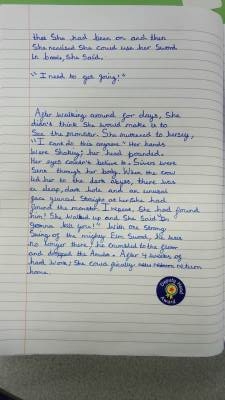 that She had been on and then
She realised She could use her Sword
to break, She Said.
"I need to get going!"
After walking around for days, She
didn't think She would make it to
See the monster. She muttered to herself,
"I cant do this anymore." Her hands
were Shaking; her head pounded.
Her eyes couldn't believe it. Shivers were
Sent through her body. When the crow
led her to the dark abyss, there was
a deep, dark hole and an unusual
face glared Straight at her. She had
found the monster. I repeat, She had found
him! She walked up and She Said "Im
gonna kill you!" With one Strong
Swing of the mighty Elm Sword, he was
no longer there! he crumbled to the floor
and dropped the. After 4 weeks of
hard work; She could finally return
home.
Award